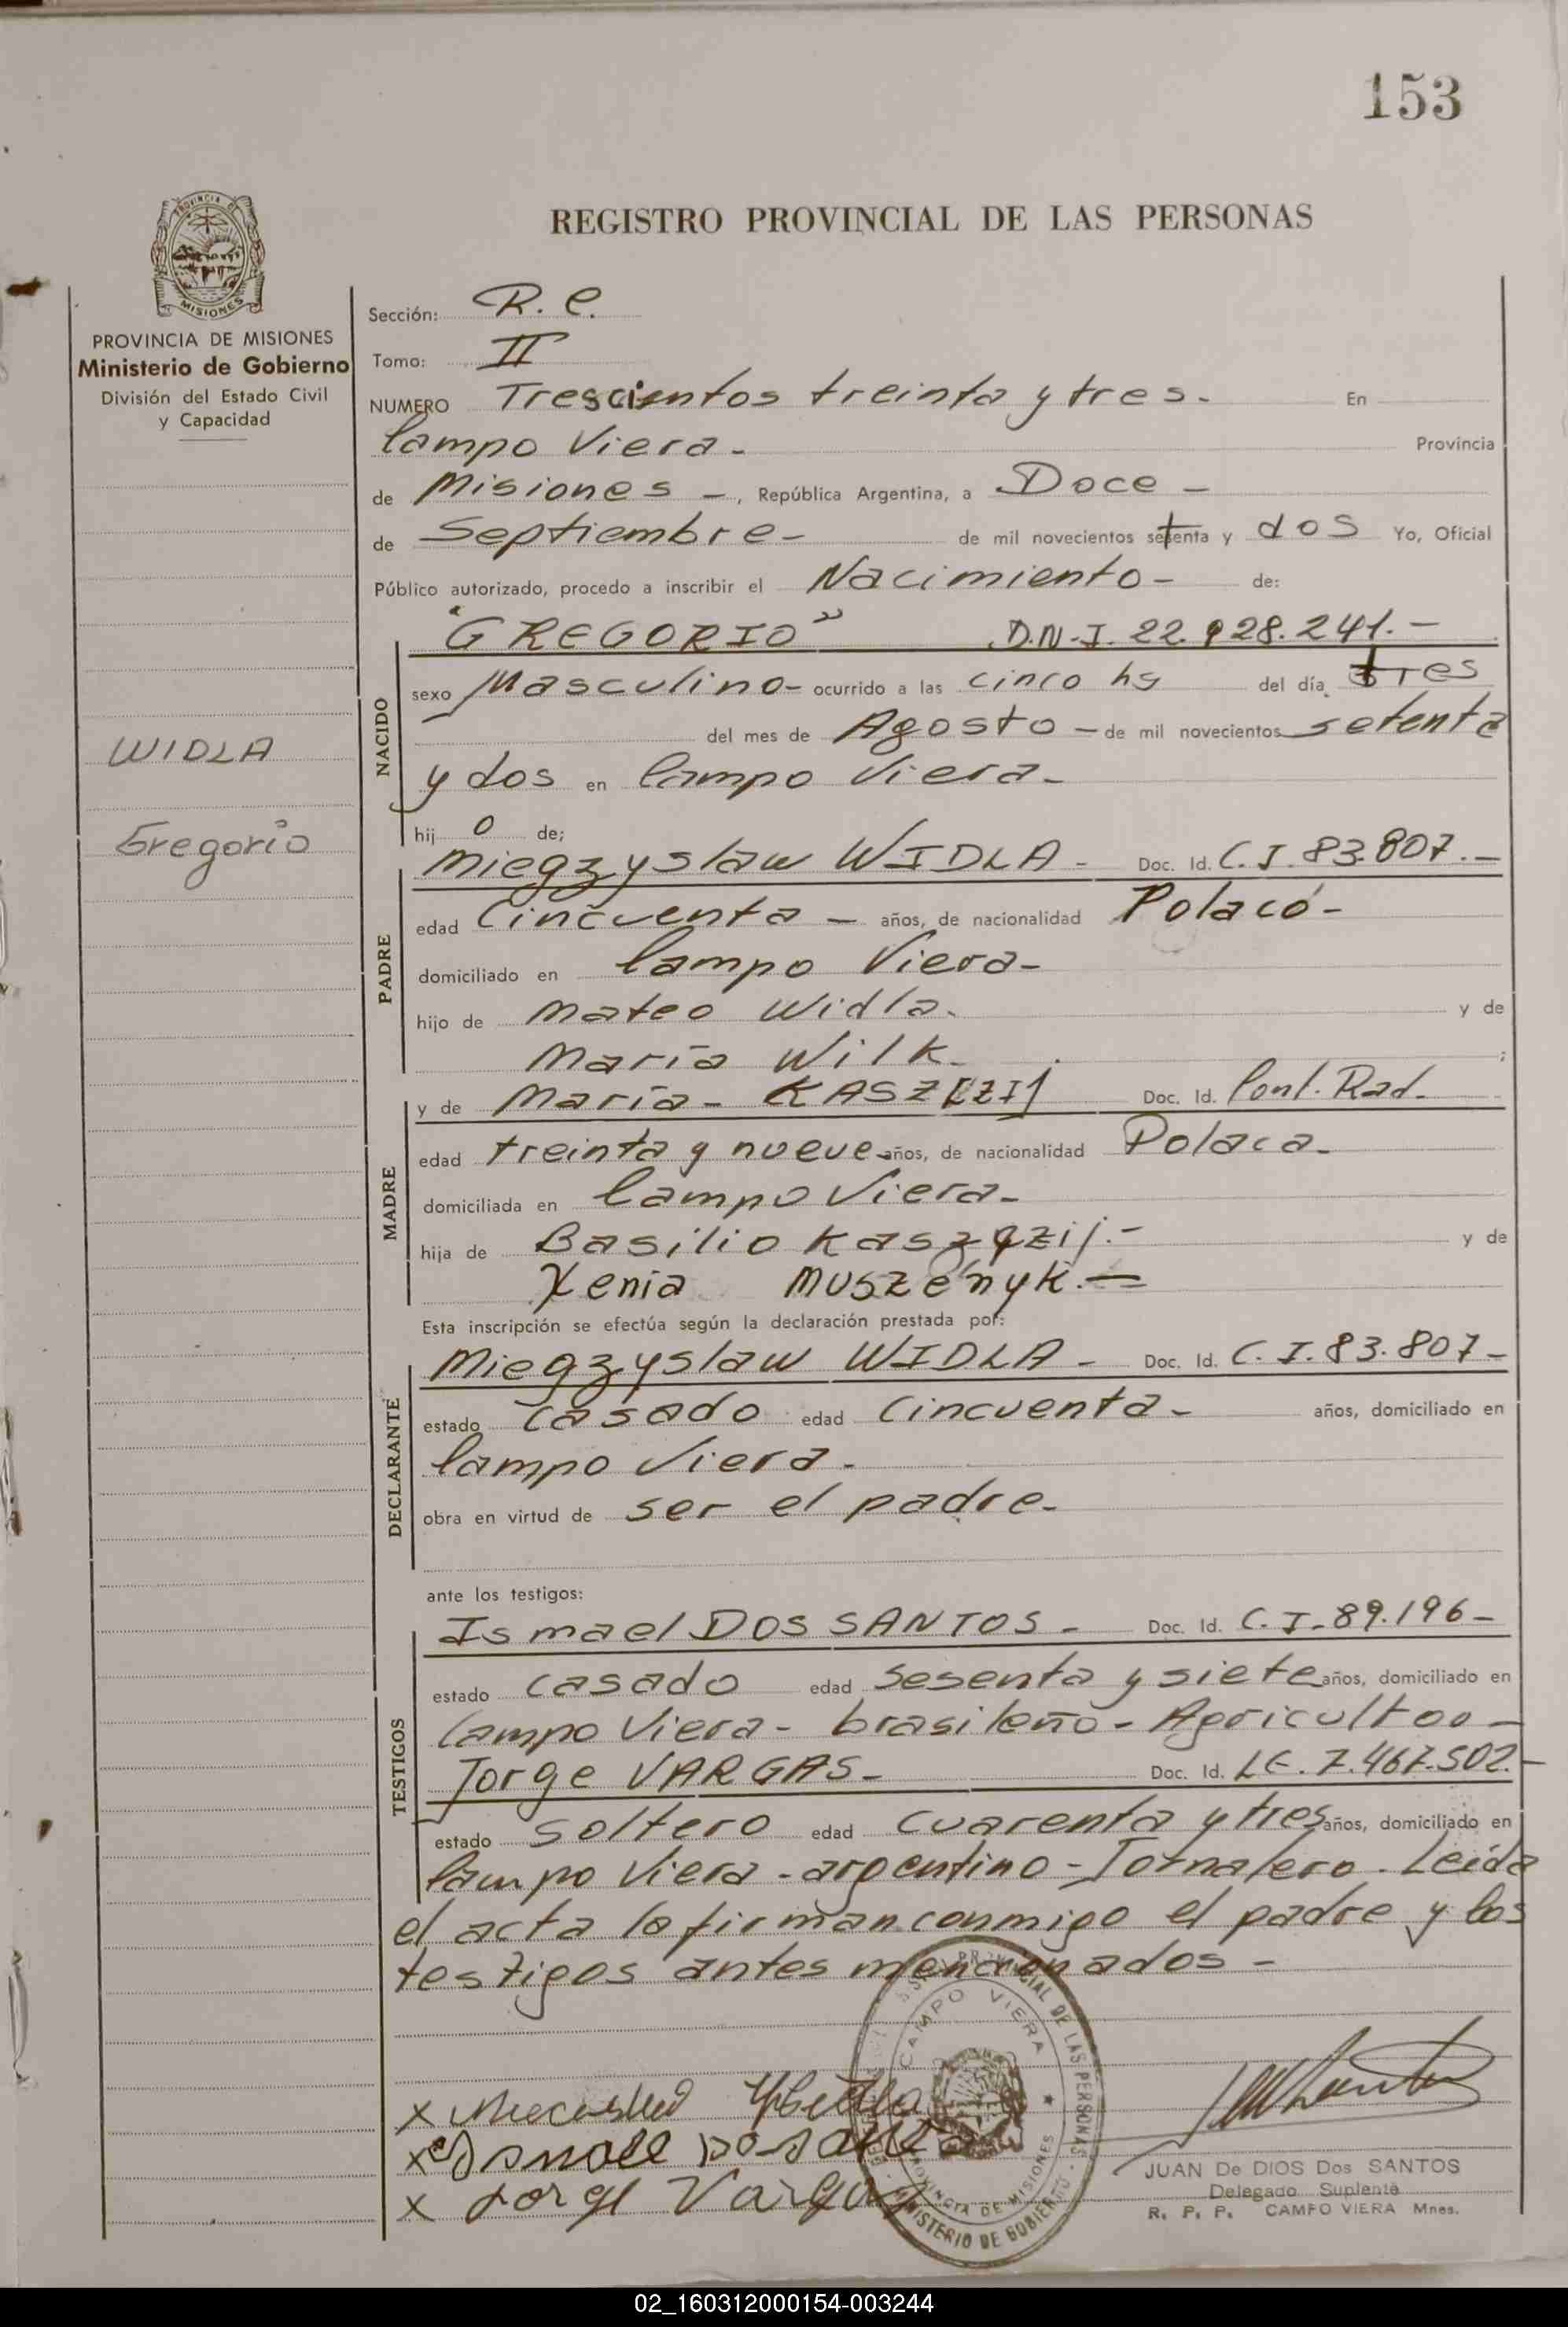 153
PROVINCIA DE
MISIONES
REGISTRO PROVINCIAL DE LAS PERSONAS
PROVINCIA DE MISIONES
Ministerio de Gobierno
División del Estado Civil
y Capacidad
WIDLA
Gregorio
Sección: R. C.
Tomo: II
NUMERO Trescientos treinta y tres. En
Campo Viera - Provincia
de Misiones -, República Argentina, a Doce -
de Septiembre - de mil novecientos setenta y dos Yo, Oficial
Público autorizado, procedo a inscribir el Nacimiento - de:
NACIDO
"GREGORIO" D.N.I. 22.928.241. -
sexo Masculino - ocurrido a las cinco hs del día tres
del mes de Agosto - de mil novecientos setenta
y dos en Campo Viera -
hij o de;
PADRE
Miegzyslaw WIDLA - Doc. Id. C.I. 83.807. -
edad Cincuenta - años, de nacionalidad Polaco -
domiciliado en Campo Viera -
hijo de Mateo Widla. y de
María Wilk. ;
MADRE
y de María - Doc. Id. Cont. Rad.
edad treinta y nueve - años, de nacionalidad Polaca.
domiciliada en Campo Viera -
hija de Basilio y de
Xenia Muszenyk. -
Esta inscripción se efectúa según la declaración prestada por:
DECLARANTE
Miegzyslaw WIDLA - Doc. Id. C.I. 83.807 -
estado Casado edad Cincuenta - años, domiciliado en
Campo Viera -
obra en virtud de ser el padre -
ante los testigos:
TESTIGOS
Ismael DOS SANTOS - Doc. Id. C.I. 89.196 -
estado casado edad Sesenta y siete años, domiciliado en
Campo Viera - brasileño - Agricultor -
Jorge VARGAS - Doc. Id. L.E. 7.467.502. -
estado soltero edad cuarenta y tres años, domiciliado en
Campo Viera - argentino - Jornalero. Leida
el acta la firman conmigo el padre y los
testigos antes mencionados -
PROVINCIAL DE LAS PERSONAS
CAMPO VIERA
PROVINCIA DE MISIONES
MINISTERIO DE GOBIERNO
x
x
x Jorge Vargas
JUAN De DIOS Dos SANTOS
Delegado Suplente
R. P. P. CAMPO VIERA Mnes.
02_160312000154-003244